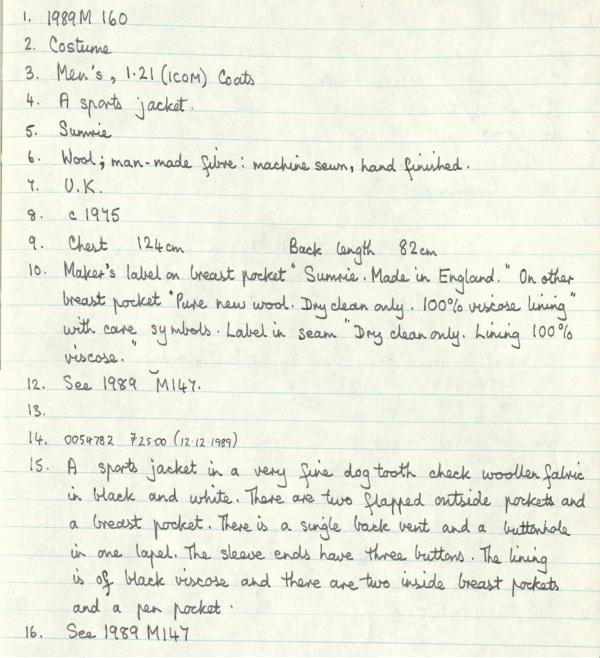 1. 1989M 160
2. Costume
3. Men's, 1.21 (ICOM) Coats
4. A sports jacket.
5. Sumrie
6. Wool; man-made fibre: machine sewn, hand finished.
7. U.K.
8. c 1975
9. Chest 124cm Back length 82cm
10. Maker's label on breast pocket "Sumrie. Made in England." On other
breast pocket "Pure new wool. Dry clean only. 100% viscose lining"
with care symbols. Label in seam "Dry clean only. Lining 100%
viscose."
12. See 1989 M147.
13.
14. 0054782 72500 (12.12.1989)
15. A sports jacket in a very fine dogtooth check woollen fabric
in black and white. There are two flapped outside pockets and
a breast pocket. There is a single back vent and a buttonhole
in one lapel. The sleeve ends have three buttons. The lining
is of black viscose and there are two inside breast pockets
and a pen pocket.
16. See 1989 M147